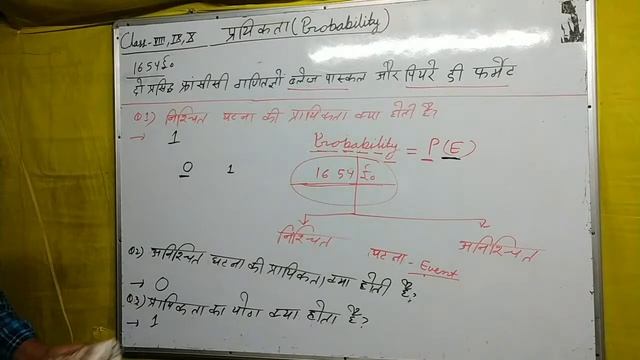 Class-VIII, IX, X प्रायिकता (Probability)
1654 ई०
दो प्रसिद्ध फ्रांसीसी गणितज्ञों ब्लेज पास्कल और पियरे डी फर्मेट
Q1) निश्चित घटना की प्रायिकता क्या होती है?
→ 1
Probability = P(E)
0 1
1654 ई०
निश्चित घटना - Event अनिश्चित
Q2) अनिश्चित घटना की प्रायिकता क्या होती है?
→ 0
Q3) प्रायिकता का योग क्या होता है?
→ 1